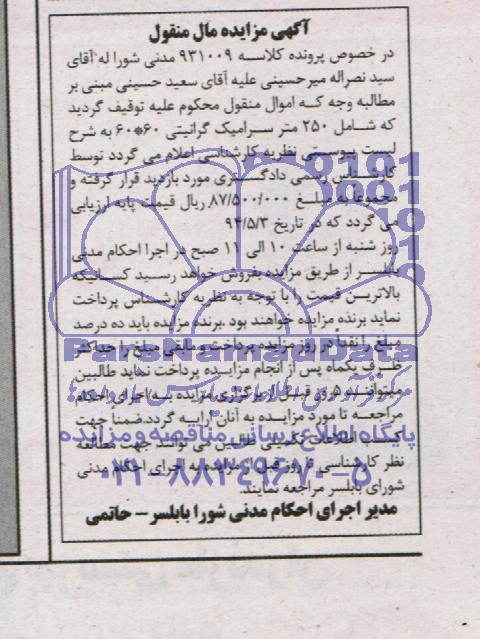 آگهی مزایده مال منقول
در خصوص پرونده کلاسه ۹۳۱۰۰۹ مدنی شورا له آقای
سید نصراله میرحسینی علیه آقای سعید حسینی مبنی بر
مطالبه وجه که اموال منقول محکوم علیه توقیف گردید
که شامل ۲۵۰ متر سرامیک گرانیتی ۶۰*۶۰ به شرح
لیست پیوستی نظریه کارشناسی اعلام می گردد توسط
کارشناس رسمی دادگستری مورد بازدید قرار گرفته و
مجموعا به مبلغ ۸۷/۵۰۰/۰۰۰ ریال قیمت پایه ارزیابی
می گردد که در تاریخ ۹۴/۵/۳
روز شنبه از ساعت ۱۰ الی ۱۱ صبح در اجرا احکام مدنی
بابلسر از طریق مزایده بفروش خواهد رسید کسانیکه
بالاترین قیمت را با توجه به نظریه کارشناس پرداخت
نماید برنده مزایده خواهند بود .برنده مزایده باید ده درصد
مبلغ را نقداً در روز مزایده پرداخت و مابقی مبلغ را حداکثر
ظرف یکماه پس از انجام مزایده پرداخت نماید طالبین
میتوانند ۵ روز قبل از برگزاری مزایده به اجرای احکام
مراجعه تا مورد مزایده به آنان ارایه گردد.ضمناً جهت
کسب اطلاعات تکمیلی طالبین می توانند جهت مطالعه
نظر کارشناسی تا روز قبل از مزایده به اجرای احکام مدنی
شورای بابلسر مراجعه نمایند.
مدیر اجرای احکام مدنی شورا بابلسر – حاتمی
ParsNamadData
پایگاه اطلاع رسانی مناقصه و مزایده
۰۲۱-۸۸۳۴۹۶۷۰-۵